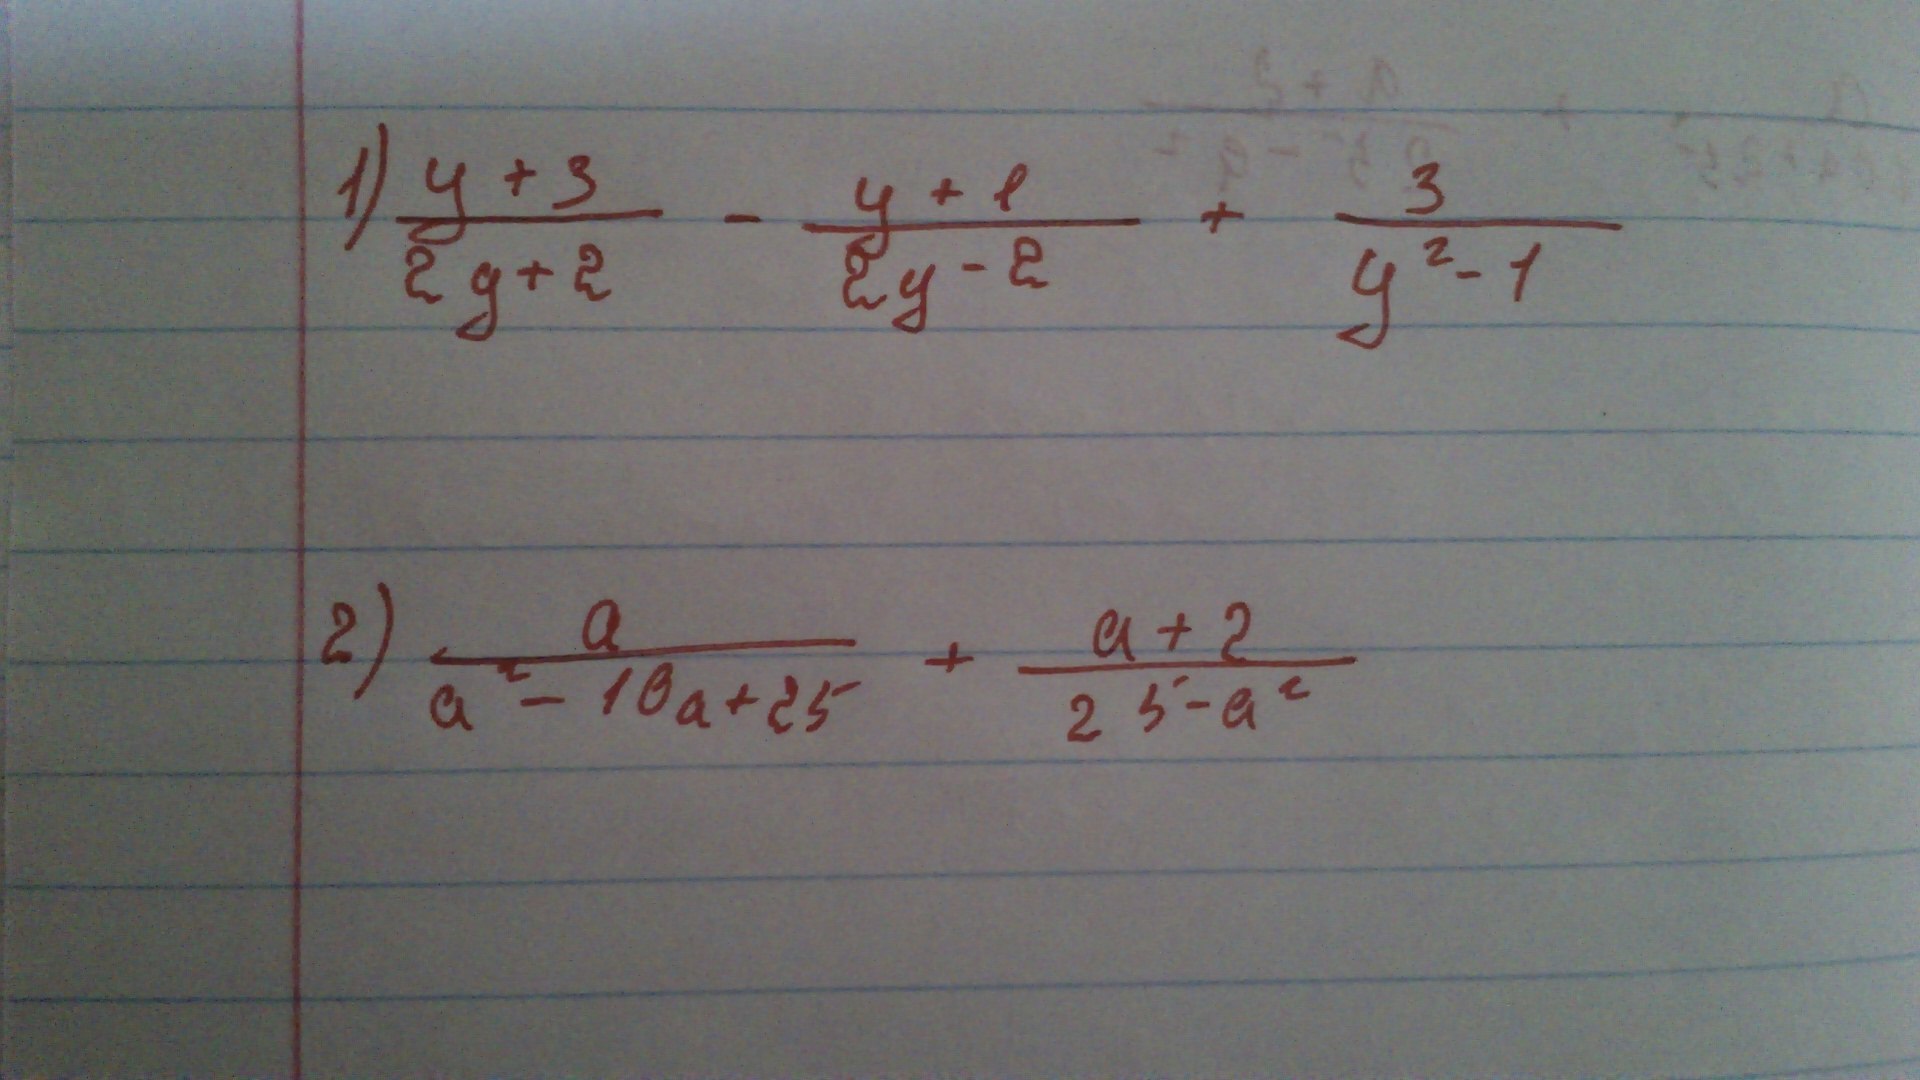 1) (y + 3)/(2y + 2) - (y + 1)/(2y - 2) + 3/(y² - 1)
2) a/(a² - 10a + 25) + (a + 2)/(25 - a²)